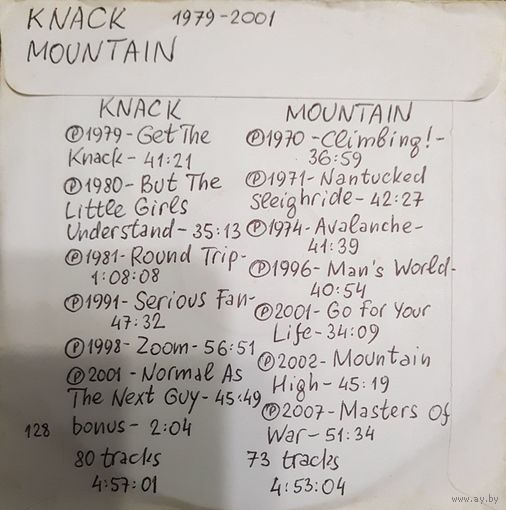 KNACK 1979-2001
MOUNTAIN
KNACK
Ⓟ1979-Get The
Knack- 41:21
Ⓟ1980- But The
Little Girls
Understand- 35:13
Ⓟ1981-Round Trip-
1:08:08
Ⓟ1991-Serious Fan-
47:32
Ⓟ1998-Zoom-56:51
Ⓟ2001-Normal As
The Next Guy-45:49
128 bonus- 2:04
80 tracks
4:57:01
MOUNTAIN
Ⓟ1970-Climbing!-
36:59
Ⓟ1971-Nantucked
Sleighride-42:27
Ⓟ1974-Avalanche-
41:39
Ⓟ1996-Man's World-
40:54
Ⓟ2001-Go For Your
Life-34:09
Ⓟ2002-Mountain
High-45:19
Ⓟ2007-Masters Of
War-51:34
73 tracks
4:53:04
www.ay.by